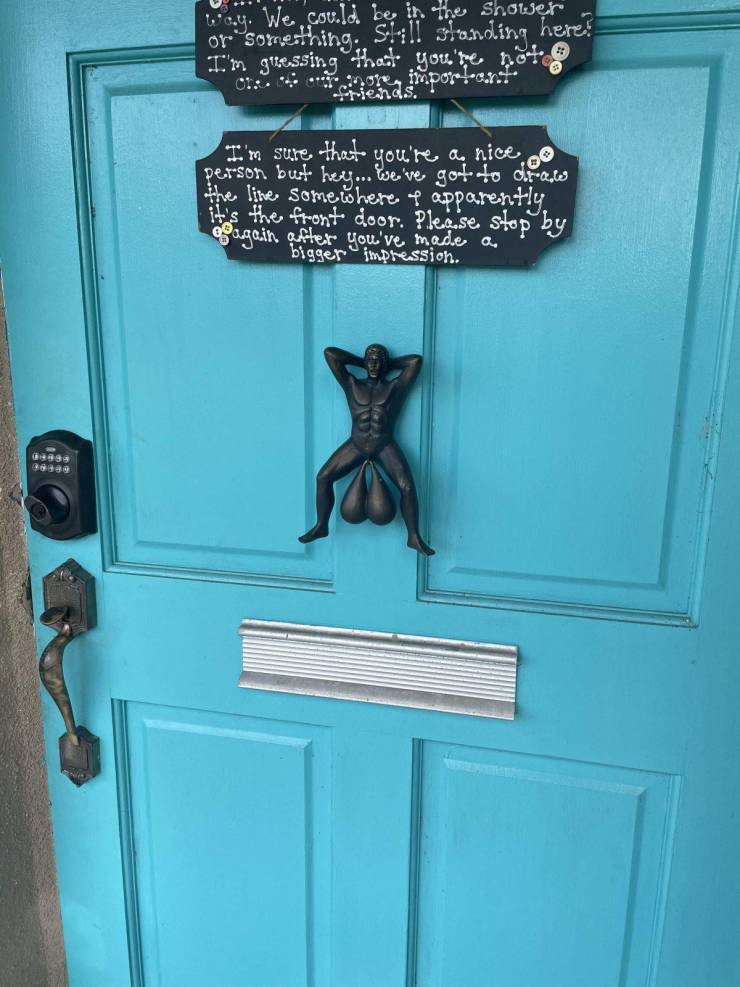 way. We could be in the shower
or something. Still standing here?
I'm guessing that you're not
one of our more important
friends.
I'm sure that you're a nice
person but hey... we've got to draw
the line somewhere & apparently
it's the front door. Please stop by
again after you've made a
bigger impression.